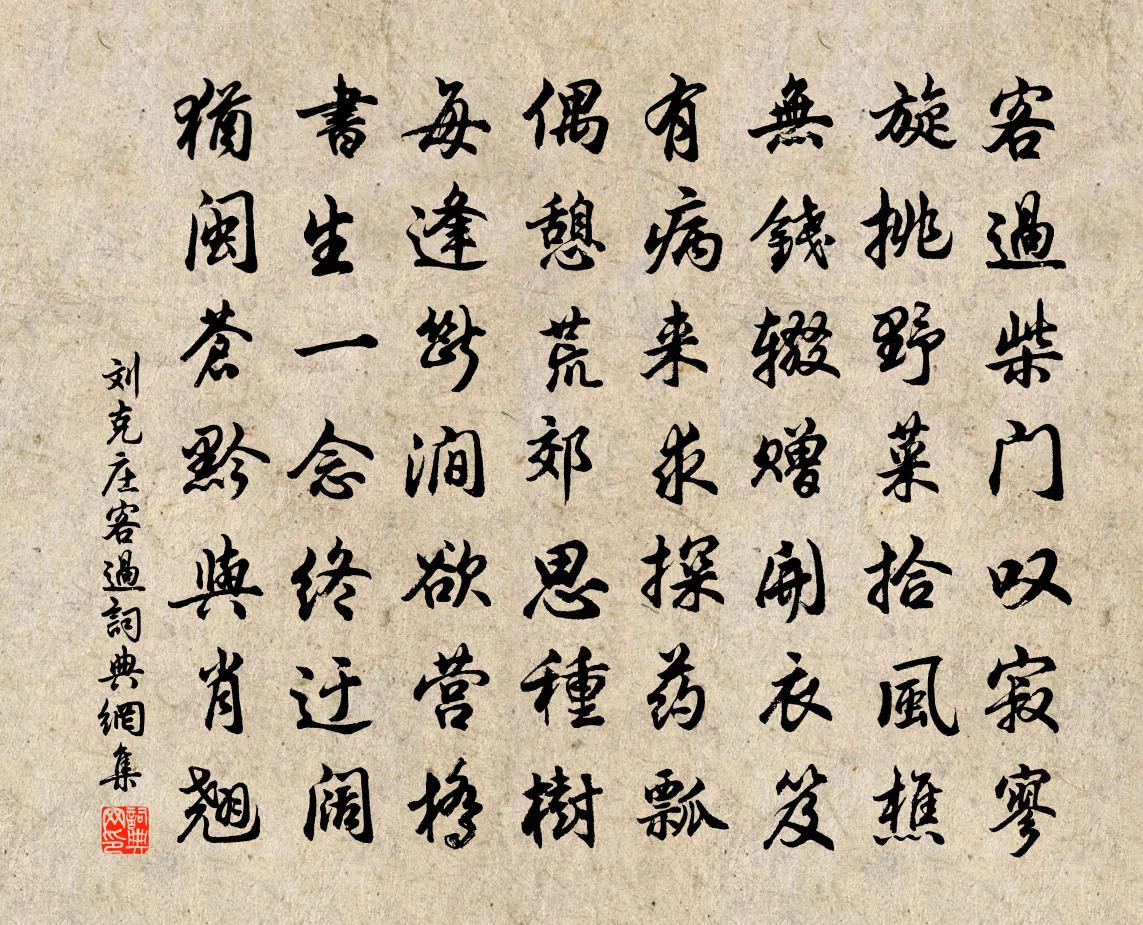 客過柴门叹寂寥
旋挑野菜拾風樵
無錢辍赠開衣笈
有病来求探药瓢
偶憩荒郊思種樹
每逢断涧欲营橋
書生一念终迂阔
猶闵蒼黔與肖翘
刘克庄客過詞典網集
詞典网印